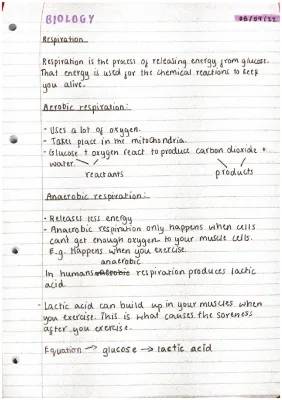 BIOLOGY
Respiration
Respiration is the process of releasing energy from glucose.
That energy is used for the chemical reactions to keep
you alive.
Aerobic respiration:
- Uses a lot of oxygen.
- Takes place in the mitochondria.
- Glucose + oxygen react to produce carbon dioxide +
water.
reactants products
Anaerobic respiration:
- Releases less energy
- Anaerobic respiration only happens when cells
cant get enough oxygen to your muscle cells.
E.g. Happens when you exercise.
anaerobic
In humans aerobic respiration produces lactic
acid.
- Lactic acid can build up in your muscles when
you exercise. This is what causes the soreness
after you exercise.
Equation → glucose → lactic acid